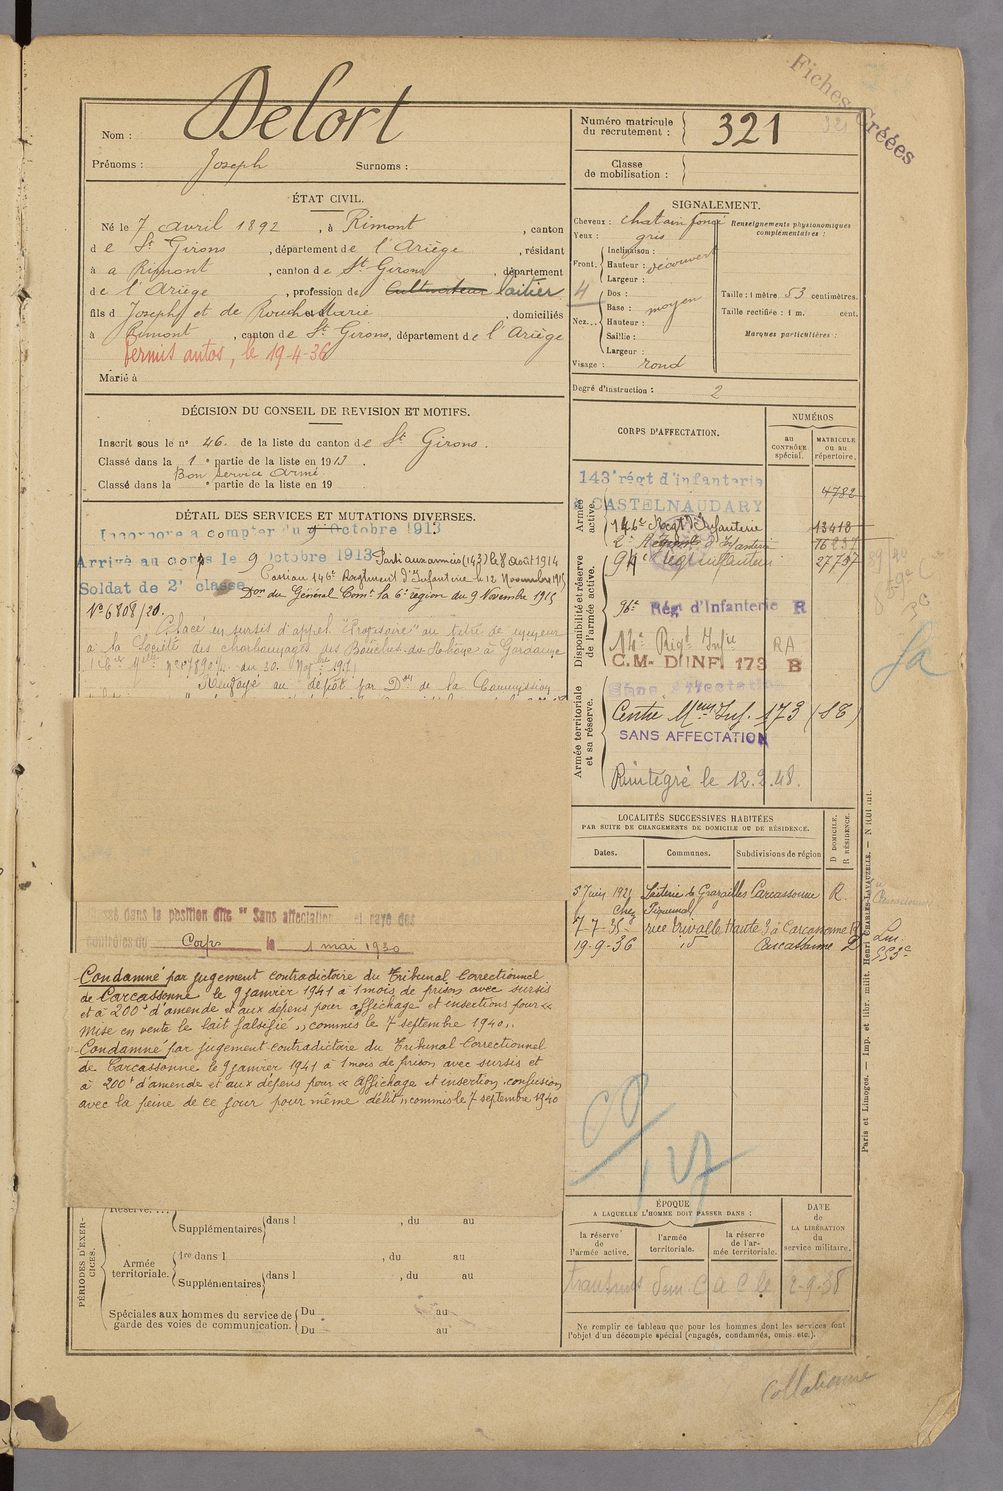 Fiches Créées
Nom : Delort
Prénoms : Joseph Surnoms :
Numéro matricule du recrutement : 321
Classe de mobilisation :
ÉTAT CIVIL.
Né le 7 avril 1892, à Rimont, canton
de St Girons, département de l'Ariège, résidant
à a Rimont, canton de St Girons, département
de l'Ariège, profession de Cultivateur laitier
fils d Joseph et de Rouch Marie, domiciliés
à Rimont, canton de St Girons, département de l'Ariège
Permis autos, le 19-4-36
Marié à
SIGNALEMENT.
Cheveux : chatain foncé
Yeux : gris
Front. Inclinaison :
Hauteur : découvert
Largeur :
4
Nez... Dos :
Base : moyen
Hauteur :
Saillie :
Largeur :
Visage : rond
Renseignements physionomiques complémentaires :
Taille : 1 mètre 53 centimètres.
Taille rectifiée : 1 m. cent.
Marques particulières :
Degré d'instruction : 2
DÉCISION DU CONSEIL DE REVISION ET MOTIFS.
Inscrit sous le n° 46. de la liste du canton de St Girons.
Classé dans la 1e partie de la liste en 1913.
Bon Service Armé
Classé dans la e partie de la liste en 19
DÉTAIL DES SERVICES ET MUTATIONS DIVERSES.
Incorporé à compter du 9 Octobre 1913
Arrivé au corps le 9 Octobre 1913 Parti aux armées (143) le 8 août 1914
Soldat de 2e classe Passé au 146e Régiment d'Infanterie le 12 Novembre 1915
Don du Général Comt la 6e région du 9 Novembre 1915
N° 6808/20.
Placé en sursis d'appel "Provisoire" au titre de mineur
à la Société des charbonnages des Bouches du Rhône à Gardanne
Renvoyé au dépôt par Don de la Commission
Classé dans la position dite "Sans affectation" et rayé des
contrôles du Corps le 1 mai 1930
Condamné par jugement contradictoire du Tribunal Correctionnel
de Carcassonne le 9 janvier 1941 à 1 mois de prison avec sursis
et à 200f d'amende et aux dépens pour affichage et insertions pour «
mise en vente le lait falsifié », commis le 7 septembre 1940.
Condamné par jugement contradictoire du Tribunal Correctionnel
de Carcassonne le 9 janvier 1941 à 1 mois de prison avec sursis et
à 200f d'amende et aux dépens pour « Affichage et insertion confusion
avec la peine de ce jour pour même délit » commis le 7 septembre 1940
CORPS D'AFFECTATION.
NUMÉROS
au CONTRÔLE spécial.
MATRICULE ou au répertoire.
Armée active.
143e régt d'infanterie 4782
CASTELNAUDARY
146e Régt d'Infanterie 13418
2e d'Infanterie 16237
Disponibilité et réserve de l'armée active.
94e Régt infanterie 27737
96e Rég. d'Infanterie R
14e Régt Infie RA
C.M. D'INF. 173 B
Armée territoriale et sa réserve.
Sans Affectation
Centre Mem Inf. 173 (SE)
SANS AFFECTATION
Réintégré le 12.2.48.
LOCALITÉS SUCCESSIVES HABITÉES
PAR SUITE DE CHANGEMENTS DE DOMICILE OU DE RÉSIDENCE.
Dates. Communes. Subdivisions de région
D DOMICILE. R RÉSIDENCE.
5 Juin 1921 Laiterie de Grazailles Carcassonne R.
chez Piquemal
7-7-35 rue Trivalle Haute 3 à Carcassonne
19-9-36 id Carcassonne D
Paris et Limoges. — Imp. et libr. milit. Henri CHARLES-LAVAUZELLE.
ÉPOQUE
A LAQUELLE L'HOMME DOIT PASSER DANS :
la réserve de l'armée active.
l'armée territoriale.
la réserve de l'armée territoriale.
DATE de LA LIBÉRATION du service militaire.
PÉRIODES D'EXERCICES.
Réserve...
Supplémentaires dans l , du au
Armée territoriale.
1re dans l , du au
Supplémentaires dans l , du au
Spéciales aux hommes du service de garde des voies de communication.
Du au
Du au
Ne remplir ce tableau que pour les hommes dont les services font
l'objet d'un décompte spécial (engagés, condamnés, omis, etc.).
Collationné